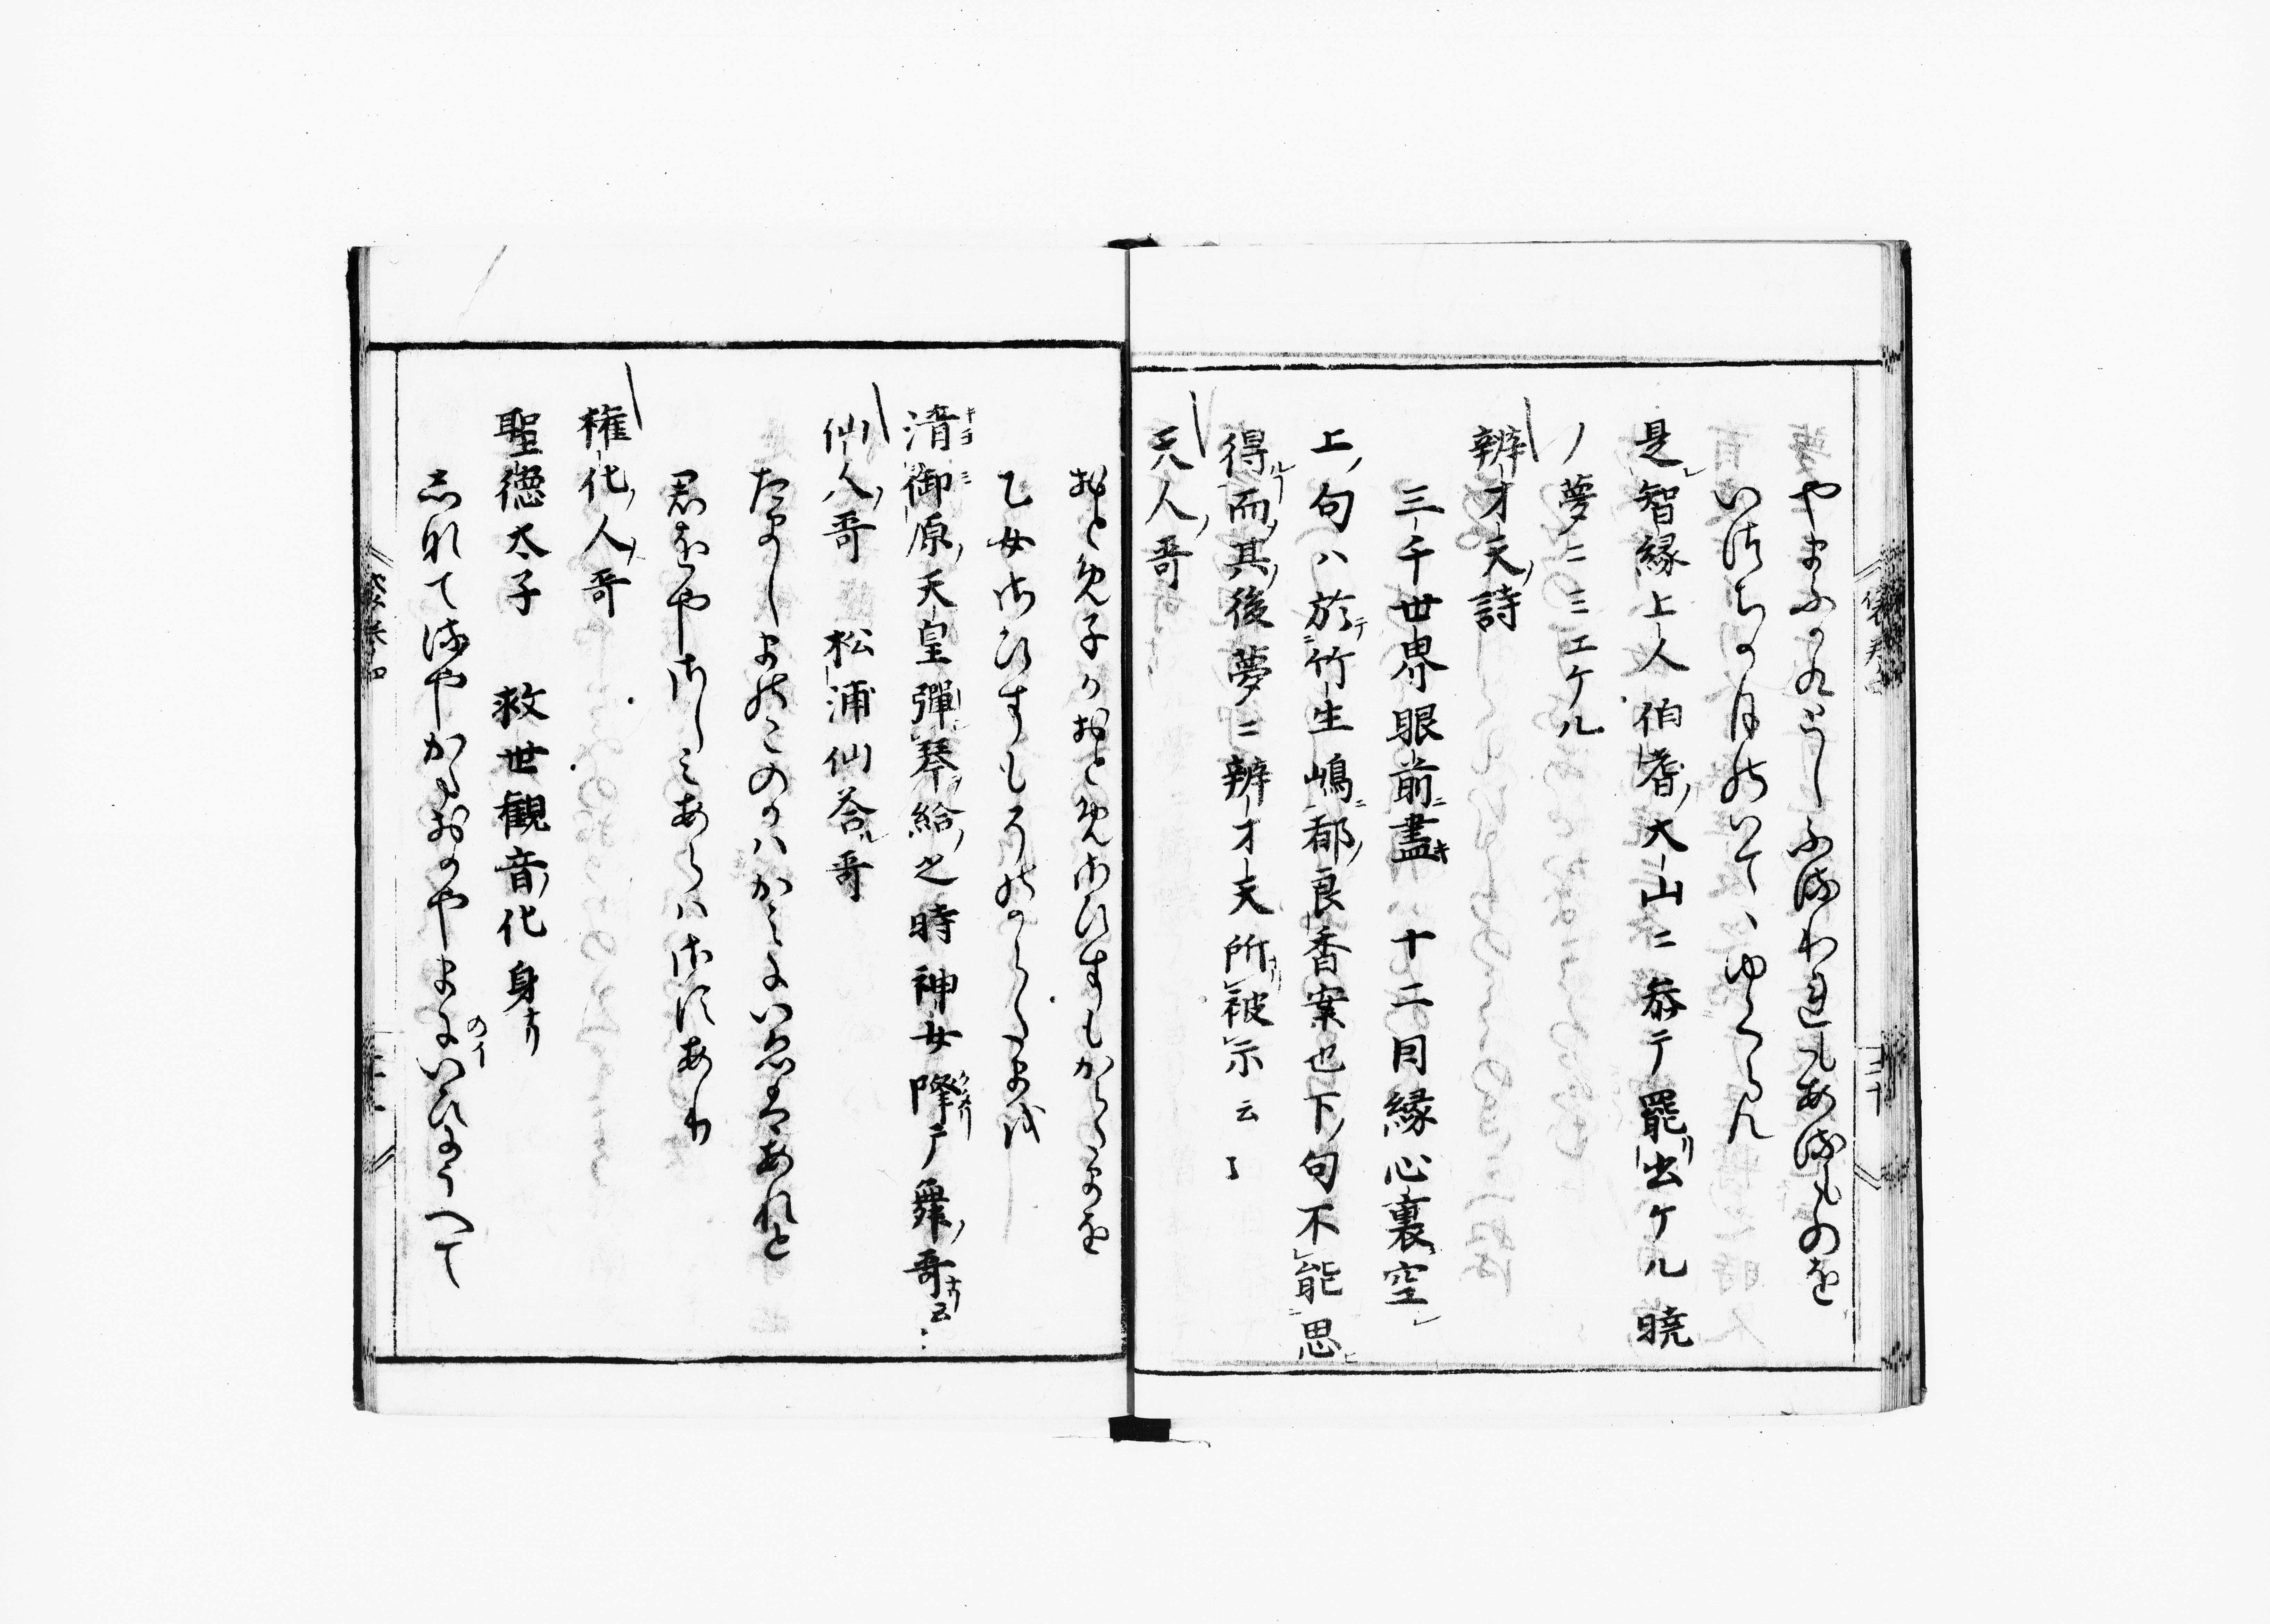 やまふかくとしふるわれもあるものを
いつちか月のいてゝゆくらん
是智縁上人伯耆ノ大山ニ参テ罷リ出ケル暁
ノ夢ニミエケル
辨才天ノ詩
三千世界眼前ニ盡キ 十二因縁心裏空
上ノ句ハ於テ竹生嶋ニ都ノ良香案也下ノ句不能思ヒ
得ルヿ而其ノ後夢ニ辨才天所被示云了
天人ノ哥
おとめ子かおとめさひすもからくまを
乙女さひすもそのからくまを
清御原ノ天皇彈琴給ノ之時神女降クタリテ舞ノ哥ナリ云々
仙人ノ哥 松浦仙答ル哥
たましまのこのかはかみにいゑはあれと
君をやさしみあらはさすあり
権化ノ人ノ哥
聖徳太子 救世観音ノ化身ナリ
しなてるやかたおかやまにいひにうへて
のイ
袋巻四
三十
袋巻四
三十一